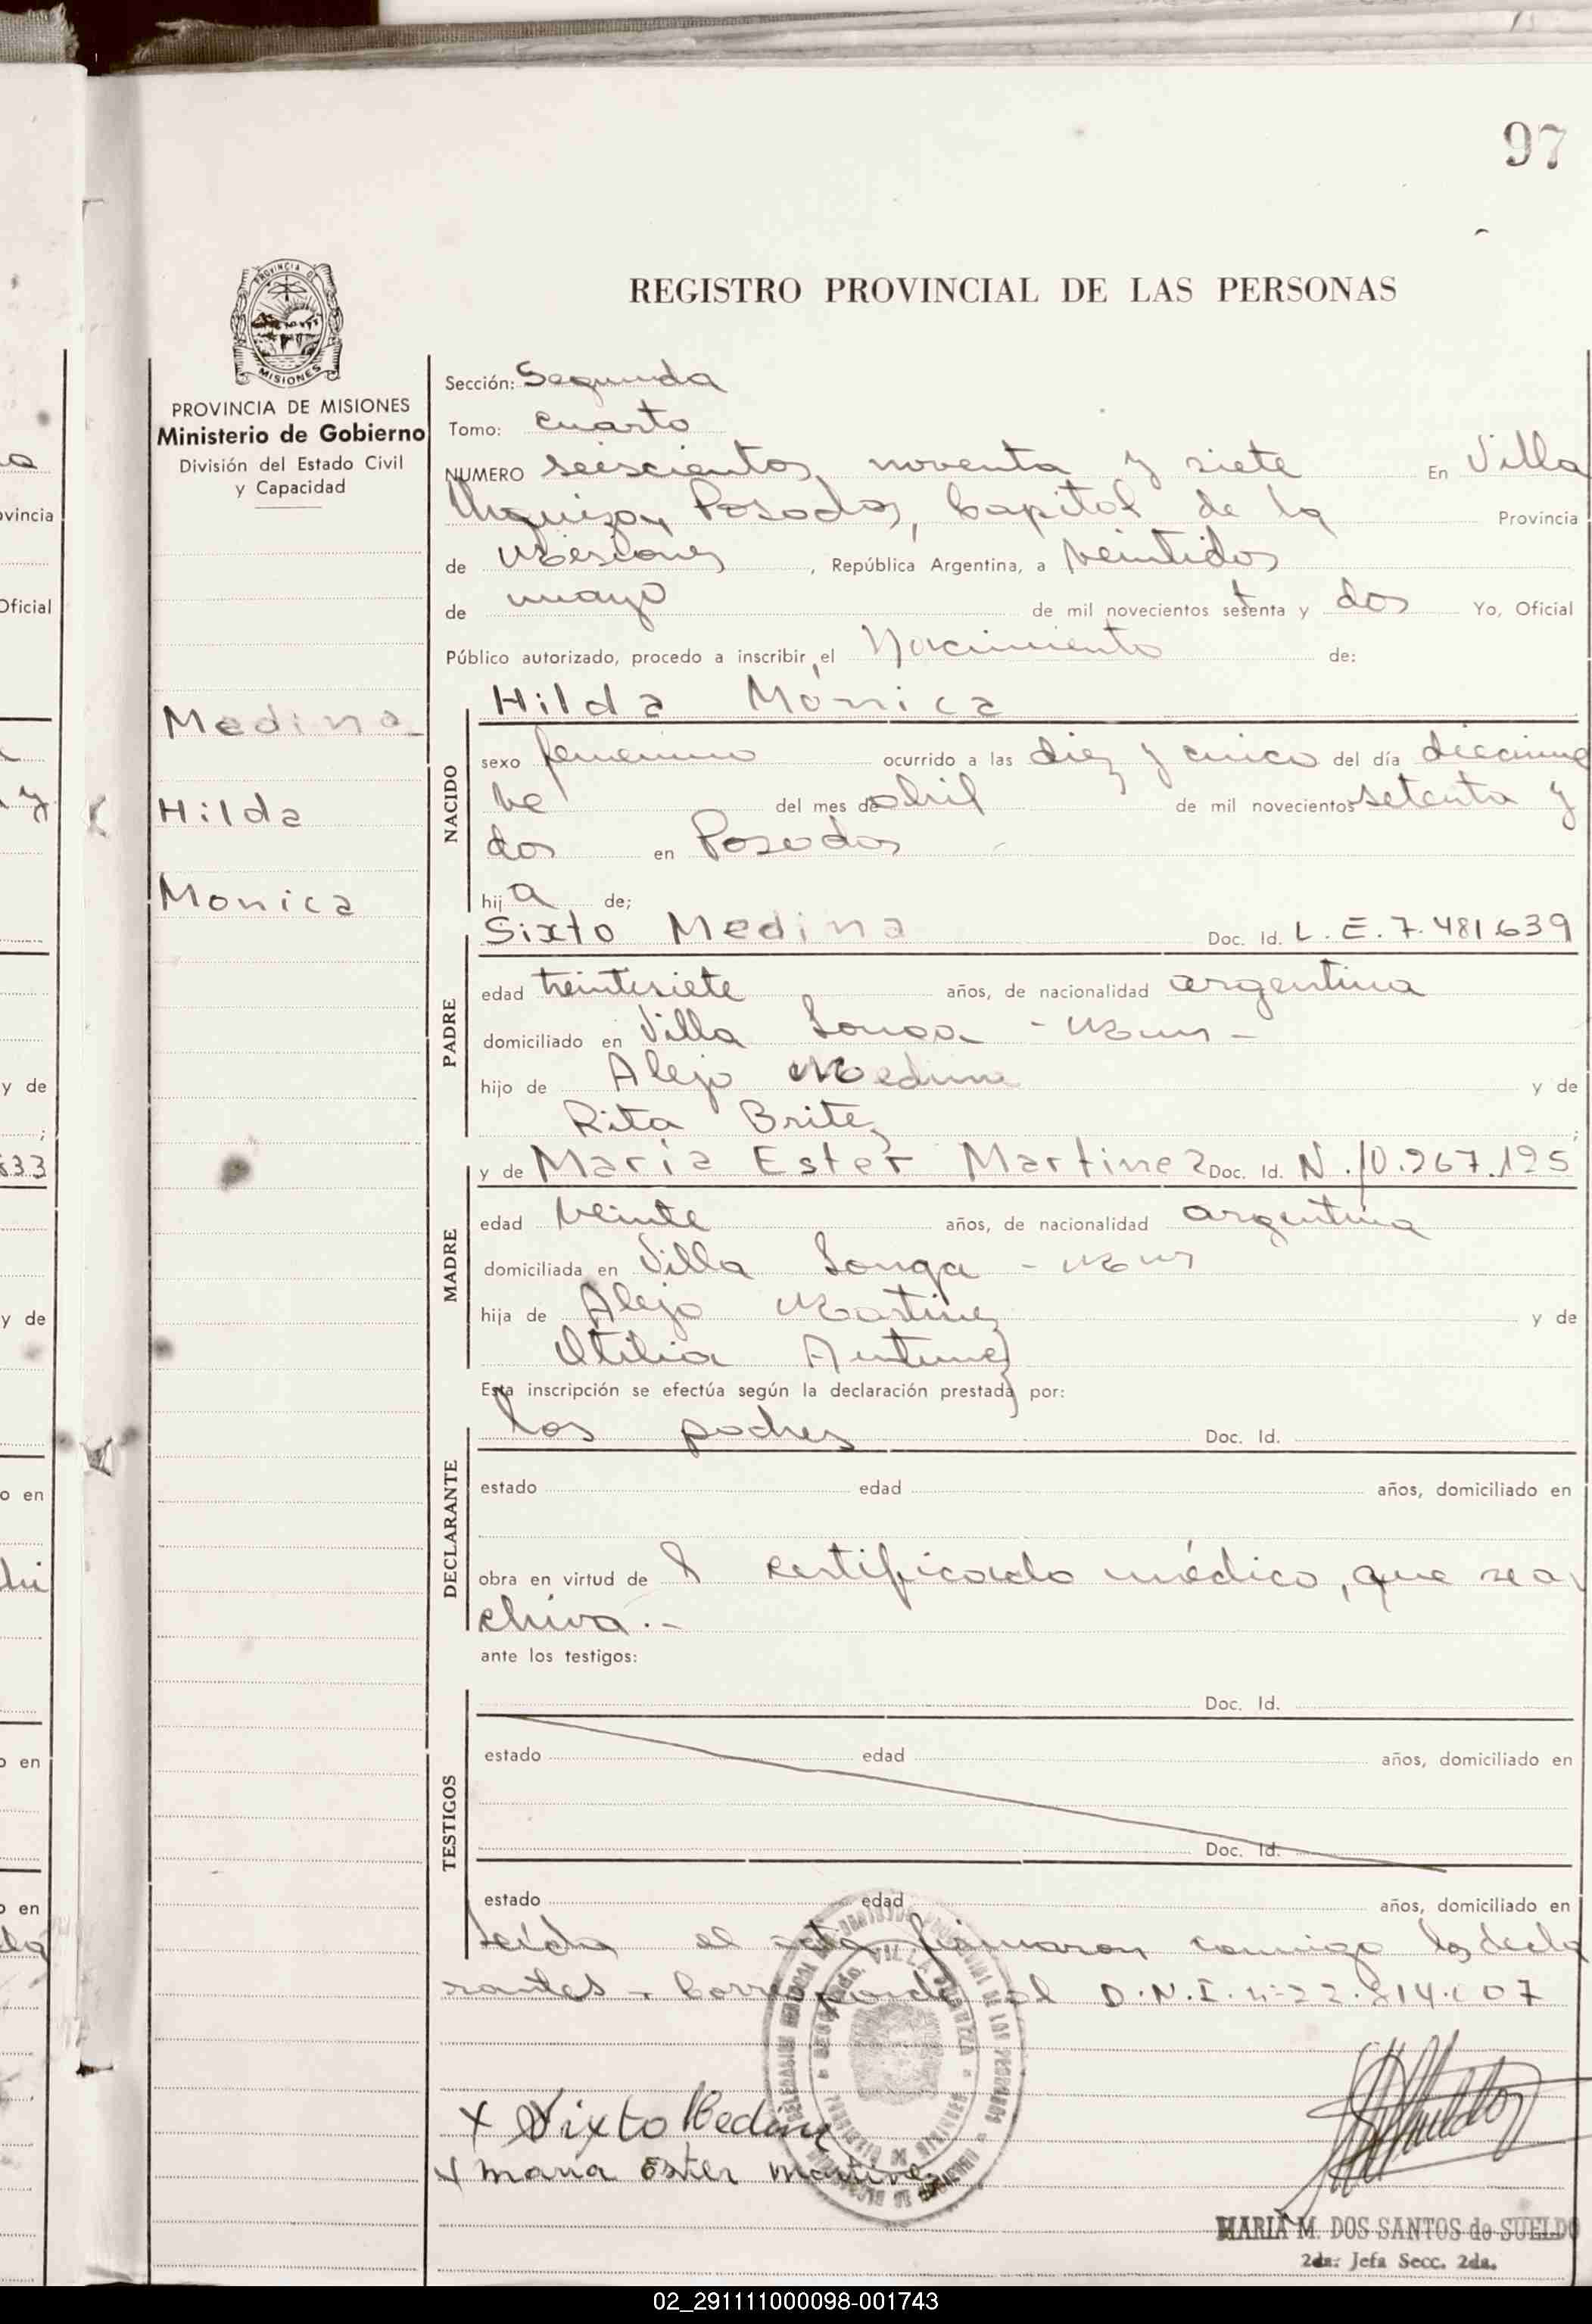 97
REGISTRO PROVINCIAL DE LAS PERSONAS
PROVINCIA DE MISIONES
Ministerio de Gobierno
División del Estado Civil
y Capacidad
Sección: Segunda
Tomo: Cuarto
NUMERO seiscientos noventa y siete En Villa
Urquiza, Posadas, Capital de la Provincia
de Misiones, República Argentina, a veintidos
de mayo de mil novecientos setenta y dos Yo, Oficial
Público autorizado, procedo a inscribir el Nacimiento de:
Hilda Mónica
Medina
Hilda
Monica
NACIDO
sexo femenino ocurrido a las diez y cinco del día diecinue
ve del mes de abril de mil novecientos setenta y
dos en Posadas
hija de;
Sixto Medina Doc. Id. L.E.7.481.639
PADRE
edad treintisiete años, de nacionalidad argentina
domiciliado en Villa Longa
hijo de Alejo Medina y de
Rita Britez ;
y de María Ester Martinez Doc. Id. N.10.267.195
MADRE
edad veinte años, de nacionalidad argentina
domiciliada en Villa Longa
hija de Alejo Martinez y de
Otilia Antunez
Esta inscripción se efectúa según la declaración prestada por:
los padres Doc. Id.
DECLARANTE
estado edad años, domiciliado en
obra en virtud de l certificado médico, que se ar
chiva.-
ante los testigos:
Doc. Id.
TESTIGOS
estado edad años, domiciliado en
Doc. Id.
estado edad años, domiciliado en
Leída el acta firmaron conmigo los decla
rantes - Corresponde al D.N.I. nº 22.814.007
X Sixto Medina
X maria Ester martinez
MARIA M. DOS SANTOS de SUELDO
2da. Jefa Secc. 2da.
02_291111000098-001743